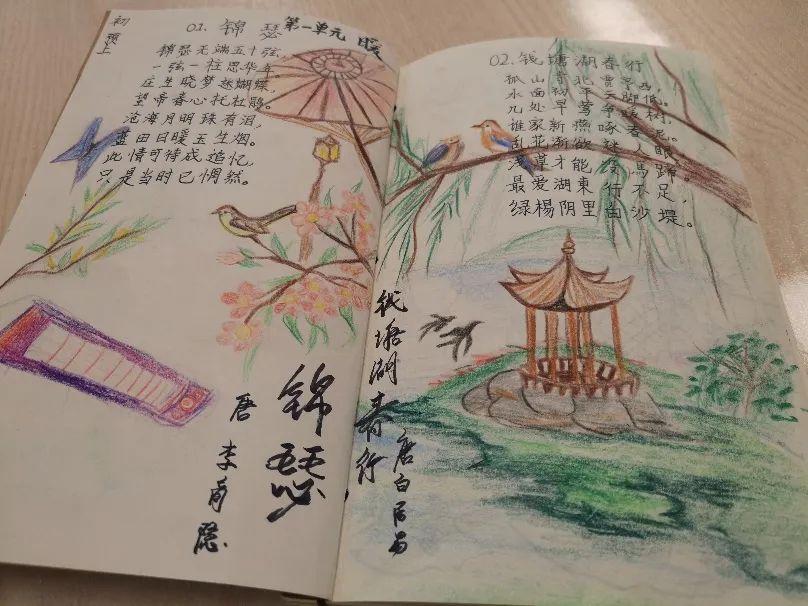 初
预上
01. 锦瑟
第一单元 暖
锦瑟无端五十弦,
一弦一柱思华年。
庄生晓梦迷蝴蝶,
望帝春心托杜鹃。
沧海月明珠有泪,
蓝田日暖玉生烟。
此情可待成追忆,
只是当时已惘然。
锦瑟
唐 李商隐
02.钱塘湖春行
孤山寺北贾亭西,
水面初平云脚低。
几处早莺争暖树,
谁家新燕啄春泥。
乱花渐欲迷人眼,
浅草才能没馬蹄。
最爱湖東行不足,
绿楊阴里白沙堤。
钱塘湖春行
唐白居易